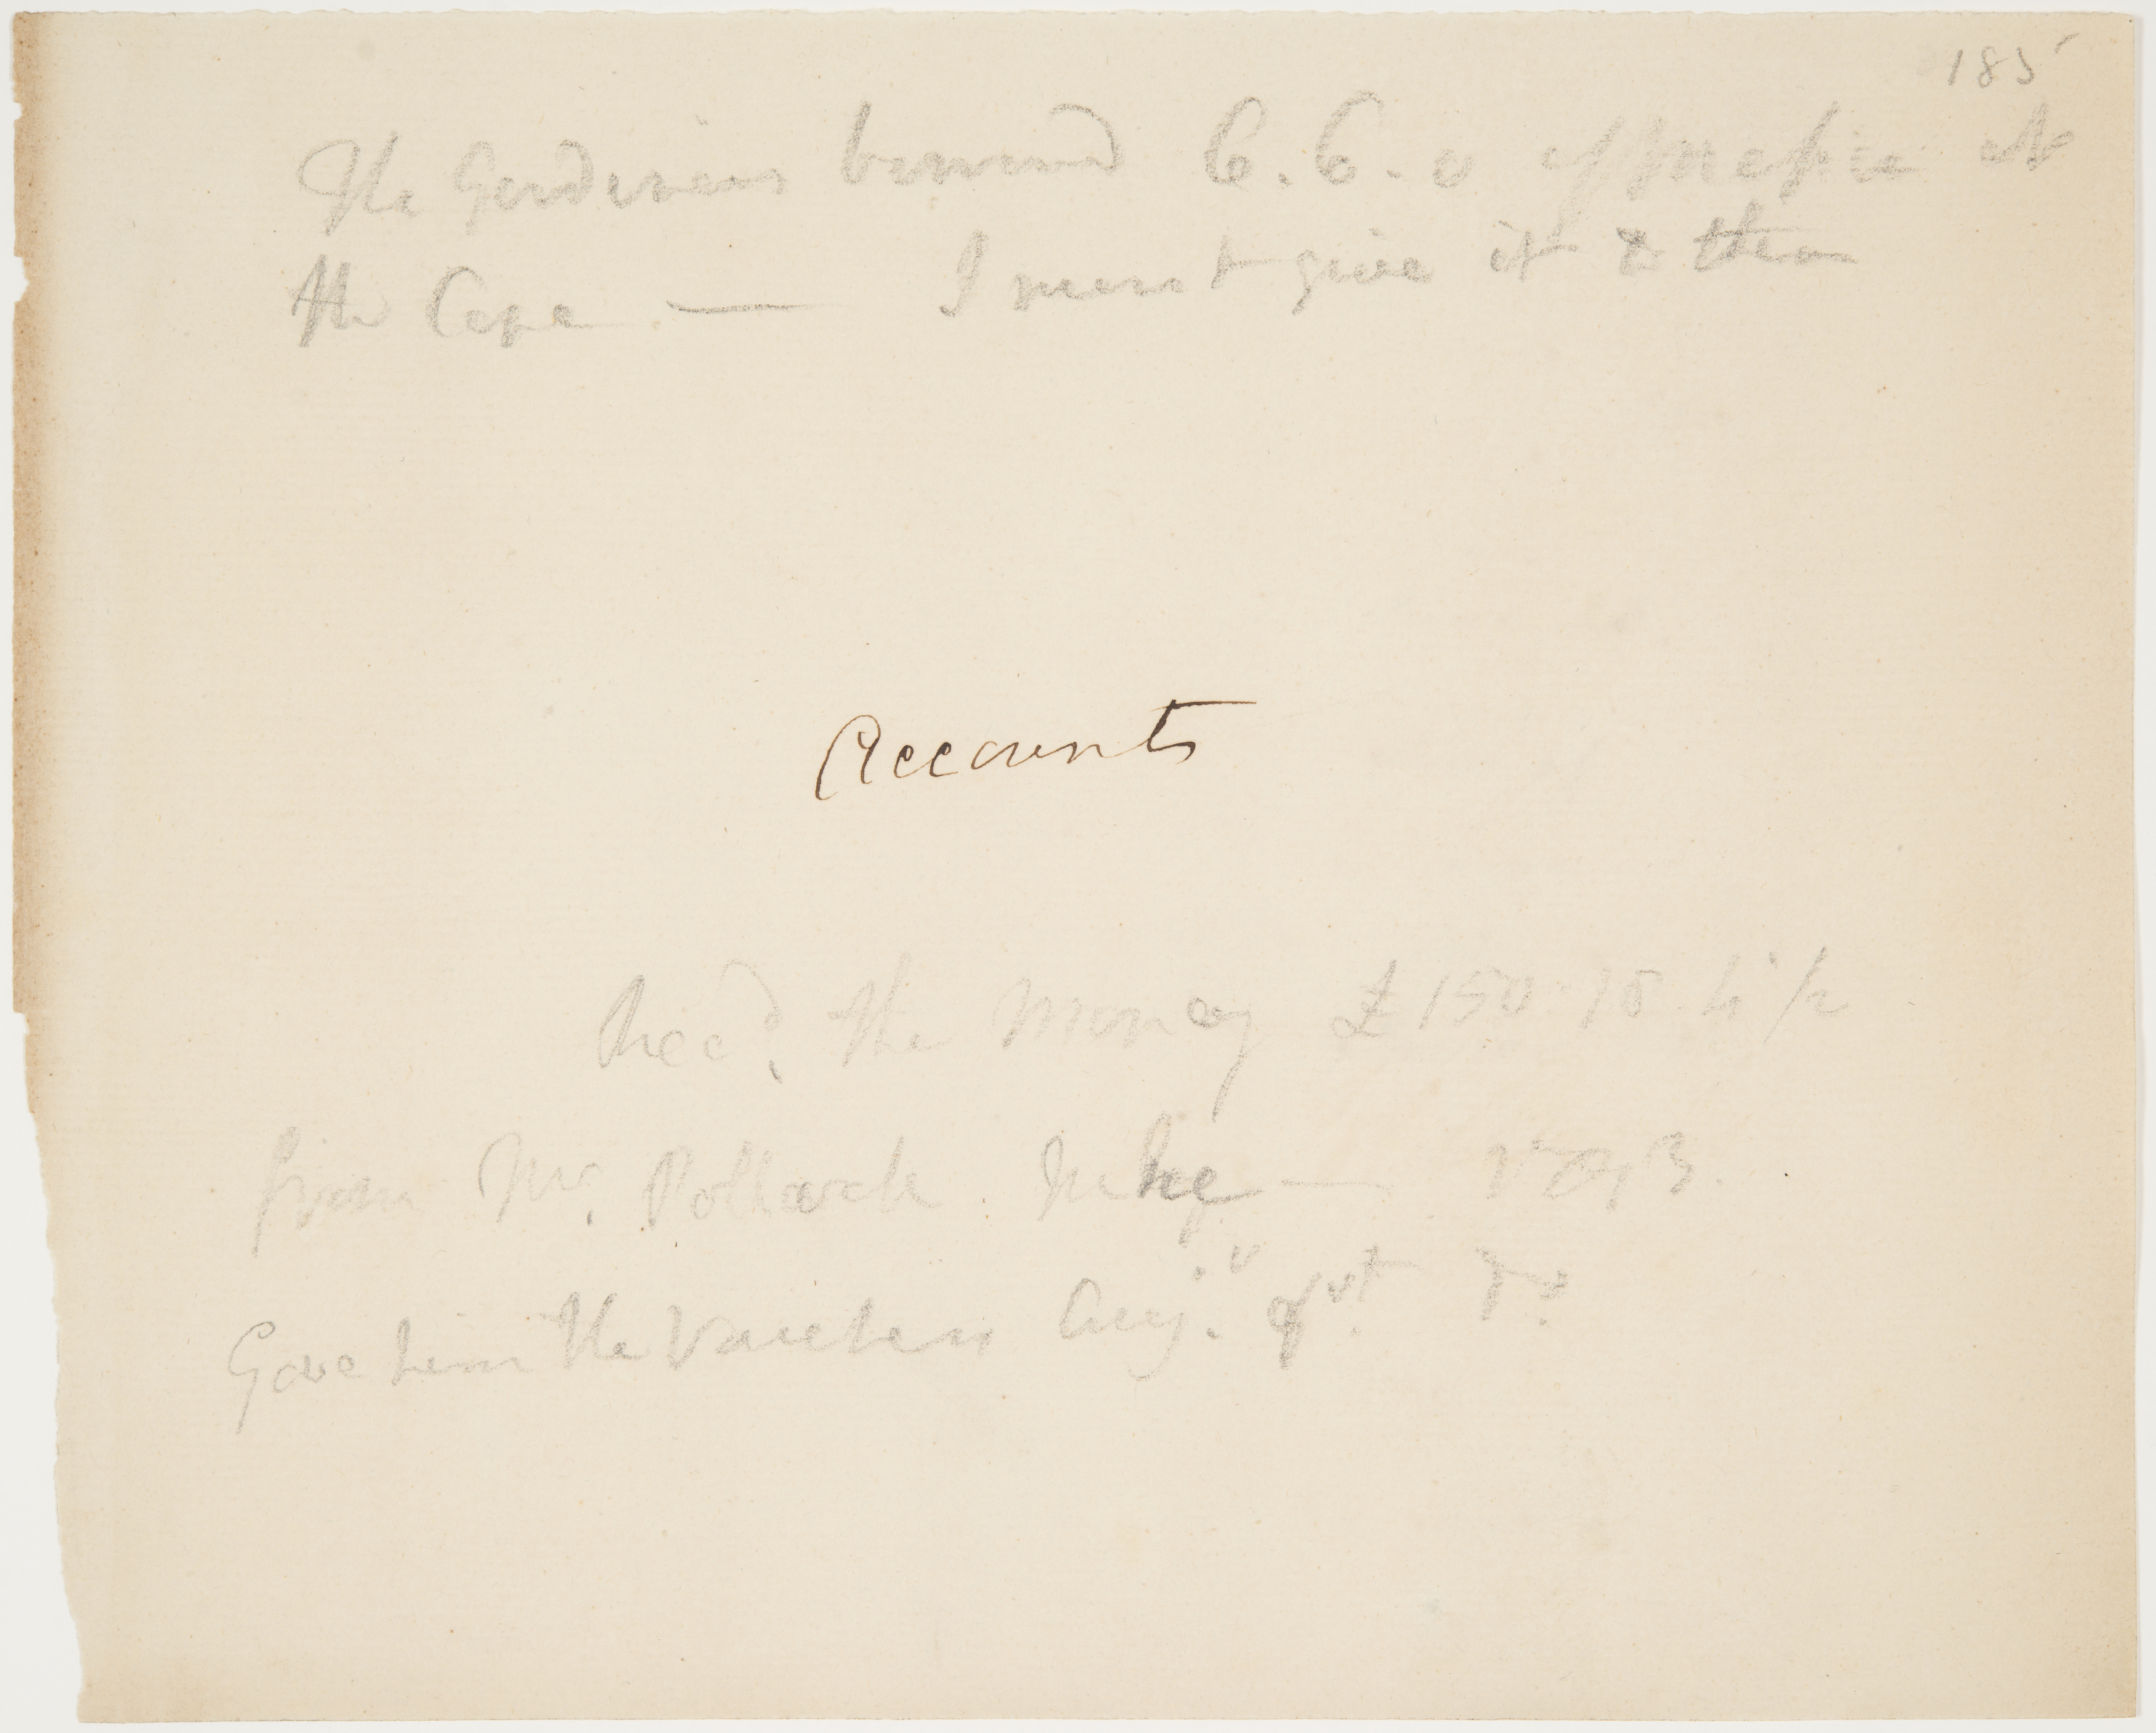 185
The Gardeners borrowed 6. 6. 0 of me at
the Cape — I must give it to them
Accounts
Recd. the Money £150 " 18 " 4 1/2
from Mr. Pollack — 1793.
Gave him the Vouchers Aug. Do